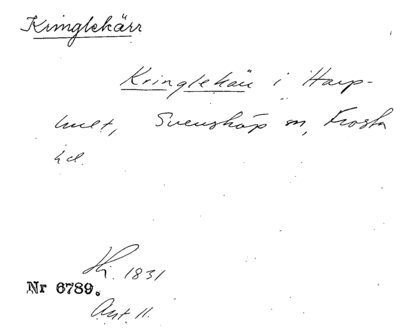 Kringlekärr
Kringlekärr i Harp-
hult, Svensköp sn, Frosta
hd.
1831
Nr 6789.
Ant 11.